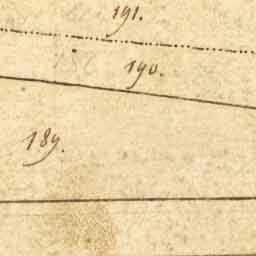 191.
190.
189.